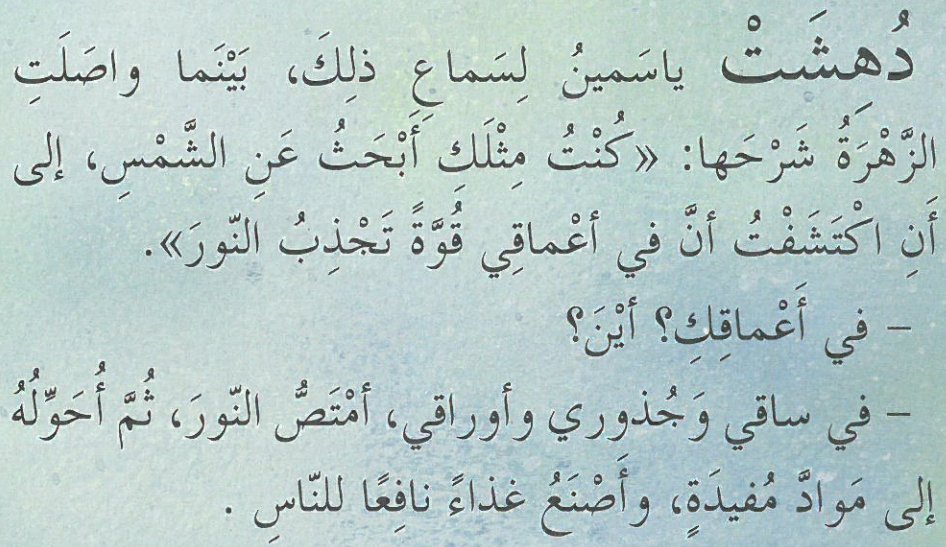 دُهِشَتْ ياسَمينُ لِسَماعِ ذلِكَ، بَيْنَما واصَلَتِ
الزَّهْرَةُ شَرْحَها: «كُنْتُ مِثْلَكِ أَبْحَثُ عَنِ الشَّمْسِ، إلى
أَنِ اكْتَشَفْتُ أنَّ في أعْماقِي قُوَّةً تَجْذِبُ النّورَ».
– في أَعْماقِكِ؟ أيْنَ؟
– في ساقي وَجُذوري وأوراقي، أمْتَصُّ النّورَ، ثُمَّ أُحَوِّلُهُ
إلى مَوادَّ مُفيدَةٍ، وأَصْنَعُ غذاءً نافِعًا للنّاسِ .